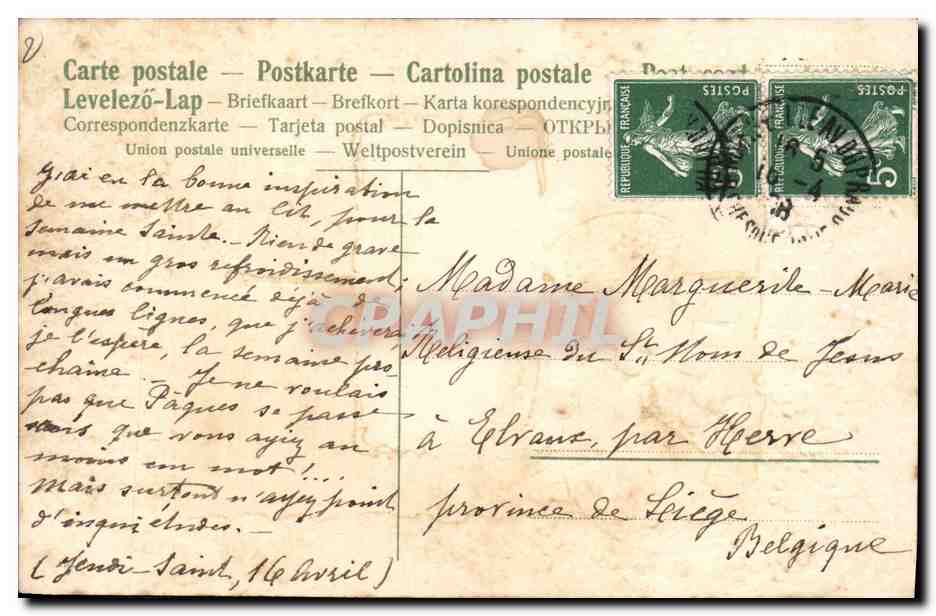 Carte postale — Postkarte — Cartolina postale — Post card
Levelező-Lap — Briefkaart — Brefkort — Karta korespondencyjn
Correspondenzkarte — Tarjeta postal — Dopisnica — ОТКРЫ
Union postale universelle — Weltpostverein — Unione postale
REPUBLIQUE FRANÇAISE
POSTES
5
REPUBLIQUE FRANÇAISE
POSTES
5
J'ai eu la bonne inspiration
de me mettre au lit, pour la
semaine Sainte. — Rien de grave
mais un gros refroidissement;
j'avais commencé déjà de
longues lignes, que j'achèverai
je l'espère, la semaine pro
chaine — Je ne voulais
pas que Pâques se passe
sans que vous ayez au
moins un mot!...
Mais surtout n'ayez point
d'inquiétudes. —
(Jeudi-Saint, 16 Avril)
Madame Marguerite-Marie
Religieuse du St Nom de Jésus
à Elvaux, par Herve
province de Liège
Belgique
CPAPHIL